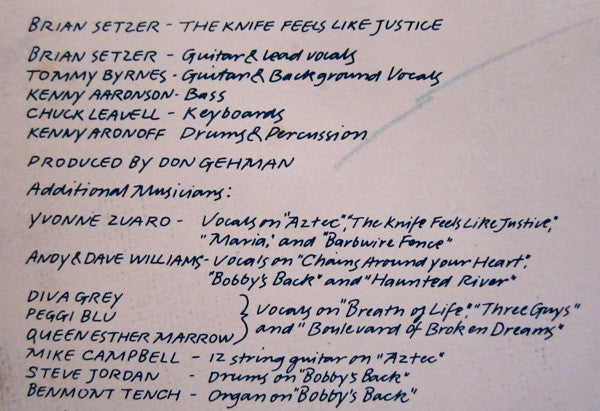 BRIAN SETZER - THE KNIFE FEELS LIKE JUSTICE
BRIAN SETZER - Guitar & lead vocals
TOMMY BYRNES - Guitar & Background Vocals
KENNY AARONSON - Bass
CHUCK LEAVELL - Keyboards
KENNY ARONOFF Drums & Percussion
PRODUCED BY DON GEHMAN
Additional Musicians:
YVONNE ZUARO - Vocals on "Aztec", "The Knife Feels Like Justice",
"Maria", and "Barbwire Fence"
ANDY & DAVE WILLIAMS - Vocals on "Chains Around your Heart",
"Bobby's Back" and "Haunted River"
DIVA GREY
PEGGI BLU
QUEEN ESTHER MARROW
Vocals on "Breath of Life", "Three Guys"
and "Boulevard of Broken Dreams"
MIKE CAMPBELL - 12 string guitar on "Aztec"
STEVE JORDAN - Drums on "Bobby's Back"
BENMONT TENCH - Organ on "Bobby's Back"